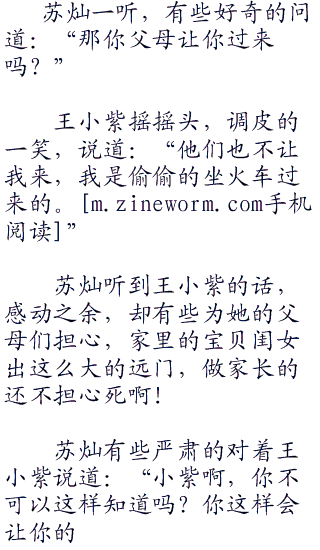 苏灿一听，有些好奇的问
道：“那你父母让你过来
吗？”
王小紫摇摇头，调皮的
一笑，说道：“他们也不让
我来，我是偷偷的坐火车过
来的。[m.zineworm.com手机
阅读]”
苏灿听到王小紫的话，
感动之余，却有些为她的父
母们担心，家里的宝贝闺女
出这么大的远门，做家长的
还不担心死啊！
苏灿有些严肃的对着王
小紫说道：“小紫啊，你不
可以这样知道吗？你这样会
让你的